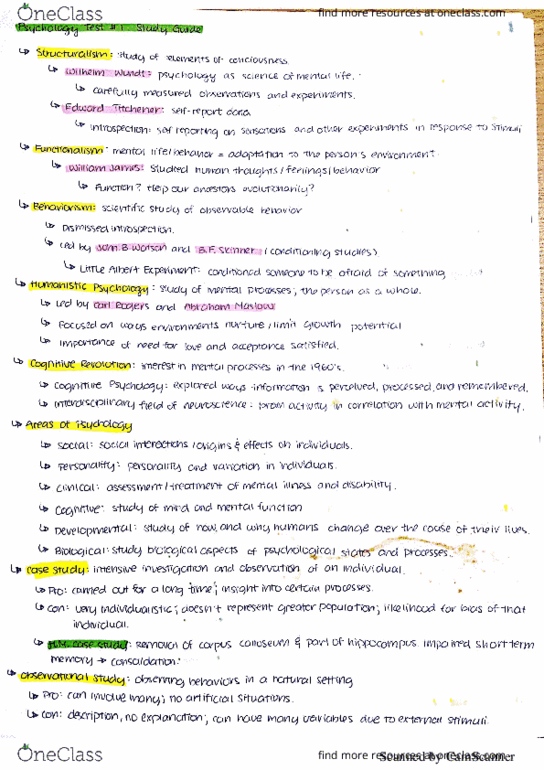 OneClass
find more resources at oneclass.com
Psychology Test #1 Study Guide
↳ Structuralism: study of elements of consciousness.
↳ Wilhelm Wundt: psychology as science of mental life.
↳ carefully measured observations and experiments.
↳ Edward Titchener: self-report data
↳ introspection: self reporting on sensations and other experiments in response to stimuli
↳ Functionalism: mental life/behavior = adaptation to the person's environment
↳ William James: studied human thoughts/feelings/behavior
↳ Function? Help our ancestors evolutionarily?
↳ Behaviorism: scientific study of observable behavior
↳ Dismissed introspection.
↳ Led by John B Watson and B.F. Skinner (conditioning studies).
↳ Little Albert Experiment: conditioned someone to be afraid of something
↳ Humanistic Psychology: study of mental processes; the person as a whole.
↳ Led by Carl Rogers and Abraham Maslow
↳ Focused on ways environments nurture/limit growth potential
↳ Importance of need for love and acceptance satisfied.
↳ Cognitive Revolution: interest in mental processes in the 1960's.
↳ Cognitive Psychology: explored ways information is perceived, processed, and remembered.
↳ Interdisciplinary field of neuroscience: brain activity in correlation with mental activity.
↳ Areas of Psychology
↳ Social: social interactions/origins & effects on individuals.
↳ Personality: personality and variation in individuals.
↳ Clinical: assessment/treatment of mental illness and disability.
↳ Cognitive: study of mind and mental function
↳ Developmental: study of how, and why humans change over the couse of their lives.
↳ Biological: study biological aspects of psychological states and processes.
↳ Case study: intensive investigation and observation of an individual.
↳ Pro: carried out for a long time; insight into certain processes.
↳ Con: very individualistic; doesn't represent greater population; likelihood for bias of that
individual.
↳ H.M. case study: removal of corpus callosum & part of hippocampus impaired short term
memory → consolidation.
↳ Observational study: observing behaviors in a natural setting
↳ Pro: can involve many; no artificial situations.
↳ Con: description, no explanation; can have many variables due to external stimuli.
OneClass
find more resources at oneclass.com
Scanned by CamScanner